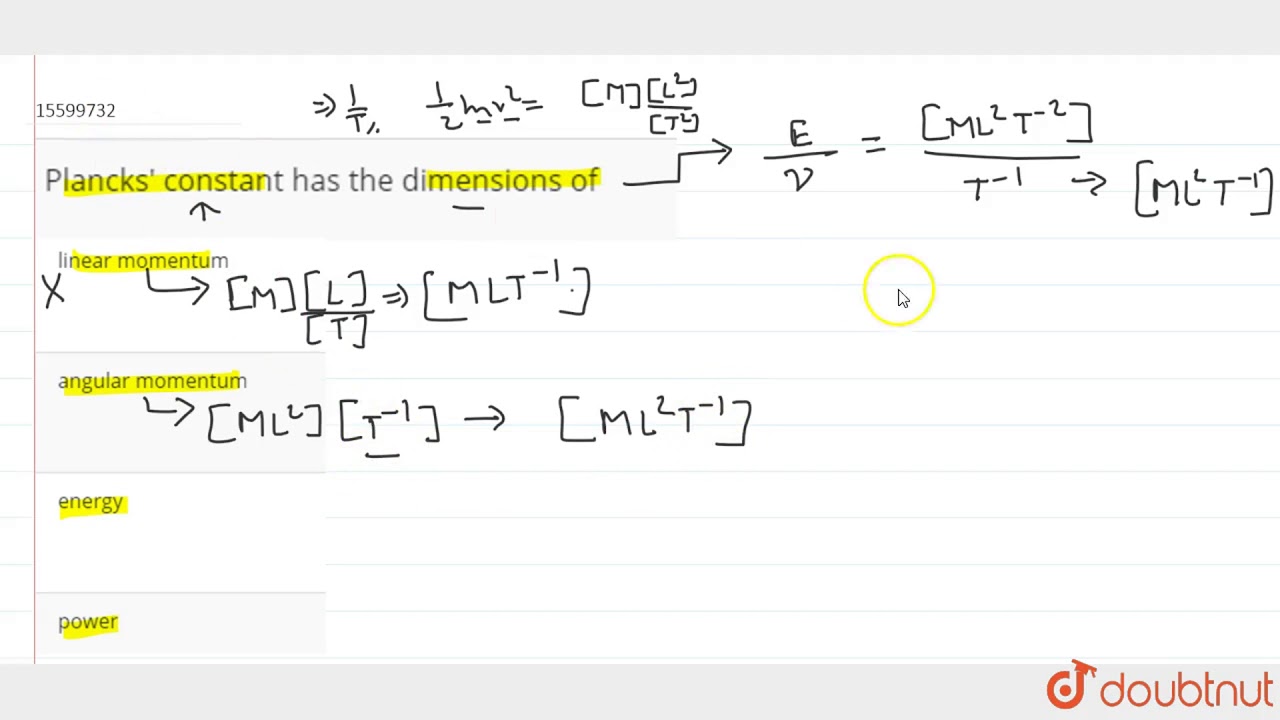 15599732
⇒ 1/T,, 1/2 mv² = [M] [L²]/[T²]
Plancks' constant has the dimensions of → E/ν = [ML²T⁻²]/T⁻¹ → [ML²T⁻¹]
linear momentum
X → [M] [L]/[T] ⇒ [MLT⁻¹]
angular momentum
→ [ML²] [T⁻¹] → [ML²T⁻¹]
energy
power
doubtnut